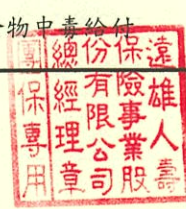 物中毒給付
遠雄人壽
保險事業股
份有限公司
總經理章
保專用